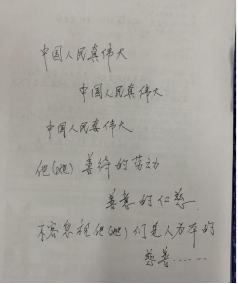 中国人民真伟大
中国人民真伟大
中国人民真伟大
他(她) 善待的劳动
善意的仁慈
不容忽视他(她)们是人万年的
慈善……